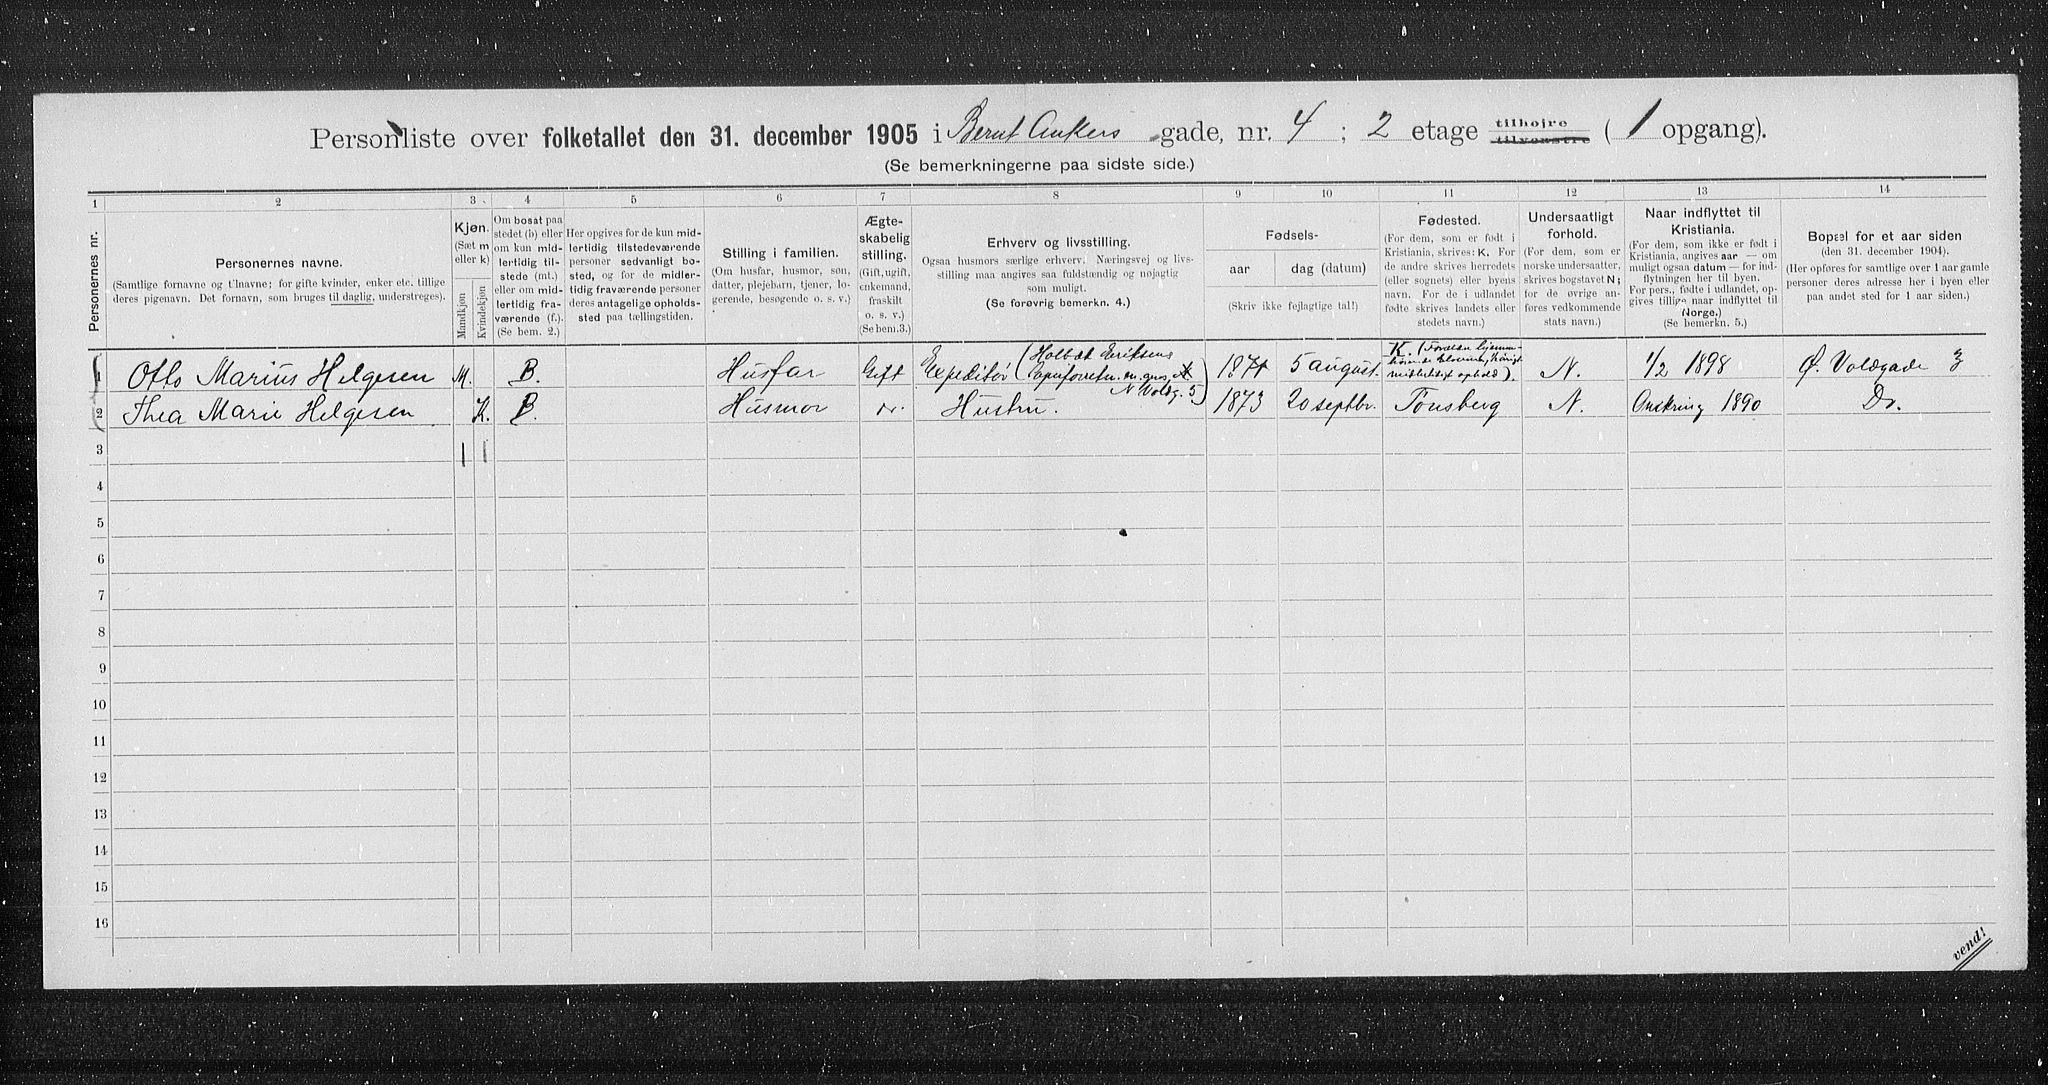 Personliste over folketallet den 31. december 1905 i Bernt Ankers gade, nr. 4 ; 2 etage tilhøjre tilvenstre ( 1 opgang).
(Se bemerkningerne paa sidste side.)
1 2 3 4 5 6 7 8 9 10 11 12 13 14
Personernes nr.
Personernes navne.
(Samtlige fornavne og tilnavne; for gifte kvinder, enker etc. tillige
deres pigenavn. Det fornavn, som bruges til daglig, understreges).
Kjøn.
(Sæt m
eller k)
Mandkjøn
Kvindekjøn
Om bosat paa
stedet (b) eller
om kun mid-
lertidig til-
stede (mt.)
eller om mid-
lertidig fra-
værende (f.).
(Se bem. 2.)
Her opgives for de kun mid-
lertidig tilstedeværende
personer sedvanligt bo-
sted, og for de midler-
tidig fraværende personer
deres antagelige opholds-
sted paa tællingstiden.
Stilling i familien.
(Om husfar, husmor, søn,
datter, plejebarn, tjener, lo-
gerende, besøgende o. s. v.)
Ægte-
skabelig
stilling.
(Gift, ugift,
enkemand,
fraskilt
o. s. v.)
(Se bem.3.)
Erhverv og livsstilling.
Ogsaa husmors særlige erhverv. Næringsvej og livs-
stilling maa angives saa fuldstændig og nøjagtig
som muligt.
(Se forøvrig bemerkn. 4.)
Fødsels-
aar dag (datum)
(Skriv ikke fejlagtige tal!)
Fødested.
(For dem, som er født i
Kristiania, skrives: K. For
de andre skrives herredets
(eller sognets) eller byens
navn. For de i udlandet
fødte skrives landets eller
stedets navn.)
Undersaatligt
forhold.
(For dem, som er
norske undersaatter,
skrives bogstavet N;
for de øvrige an-
føres vedkommende
stats navn.)
Naar indflyttet til
Kristiania.
(For dem, som ikke er født i
Kristiania, angives aar — om
muligt ogsaa datum — for ind-
flytningen her til byen.
For pers., fødte i udlandet, op-
gives tillige naar indflyttet til
Norge.)
(Se bemerkn. 5.)
Bopæl for et aar siden
(den 31. december 1904).
(Her opføres for samtlige over 1 aar gamle
personer deres adresse her i byen eller
paa andet sted for 1 aar siden.)
1 Otto Marius Helgesen M. B. Husfar Gift Expeditør (Holbæk Eriksens N. Voldg. 5) 1871 5 august. K. N. 1/2 1898 Ø. Voldgade 3
2 Thea Marie Helgesen K. B. Husmor do. Hustru. 1873 20 septbr. Tønsberg N. Omkring 1890 Do.
3 1 1
4
5
6
7
8
9
10
11
12
13
14
15
16
vend!